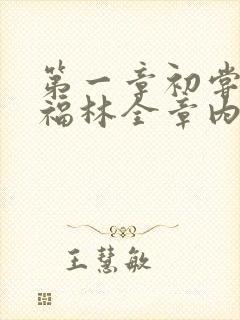 第一章初尝
福林全章内
王慧敏